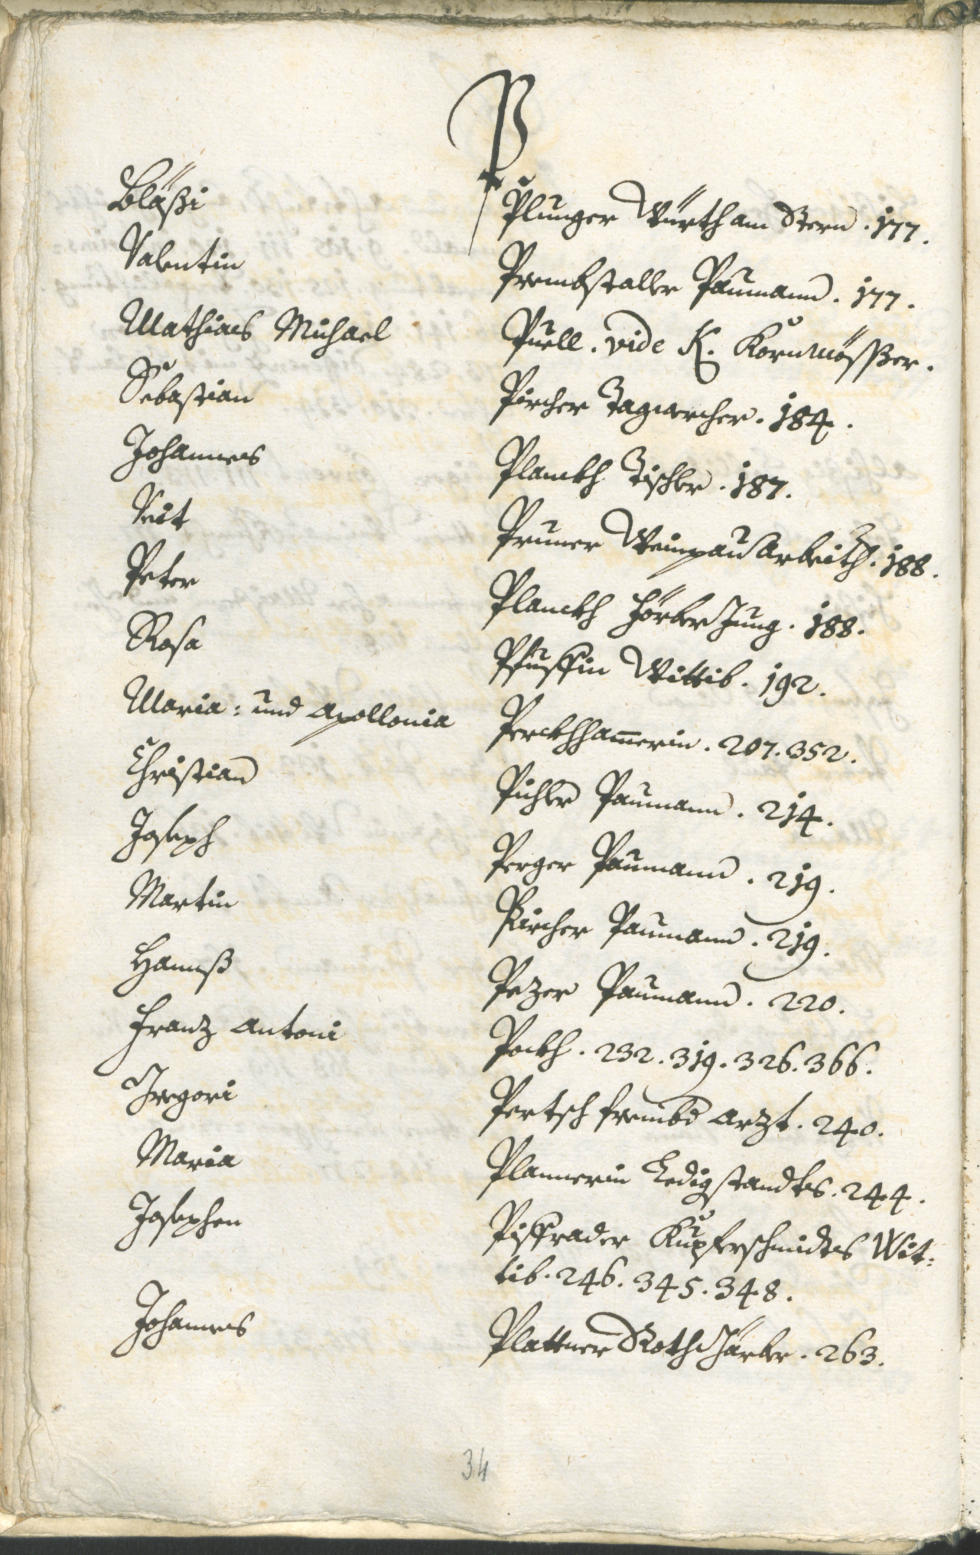 P
Bläßi Plunger Würth am Stern. 177.
Valentin Prembstaller Paumann. 177.
Mathias Michael Puell. vide K. Kornmösßer.
Sebastian Pircher Tagwercher. 184.
Johannes Planckh Tischler. 187.
Veit Pruner Weinpau Arbeith. 188.
Peter Planckh Förber Jung. 188.
Rosa Wittib. 192.
Maria: und Apollonia Perckhhamerin. 207. 352.
Christian Pichler Paumann. 214.
Joseph Perger Paumann. 219.
Martin Pircher Paumann. 219.
Hannß Pezer Paumann. 220.
Franz Antoni Pockh. 232. 319. 326. 366.
Gregori Pertsch frembd Arzt. 240.
Maria Plannerin Ledig standtes. 244.
Josephen Piffrader Kupferschmidtes Wit-
tib. 246. 345. 348.
Johannes Plattner Roth Färber. 263.
34